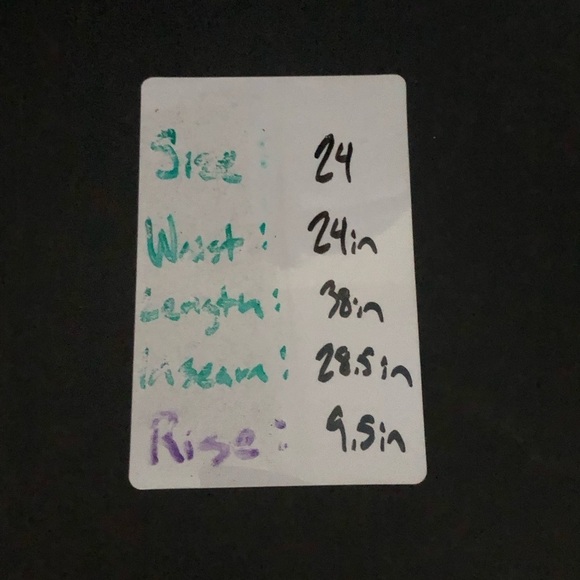 Size: 24
Waist: 24in
Length: 38in
Inseam: 28.5in
Rise: 9.5in